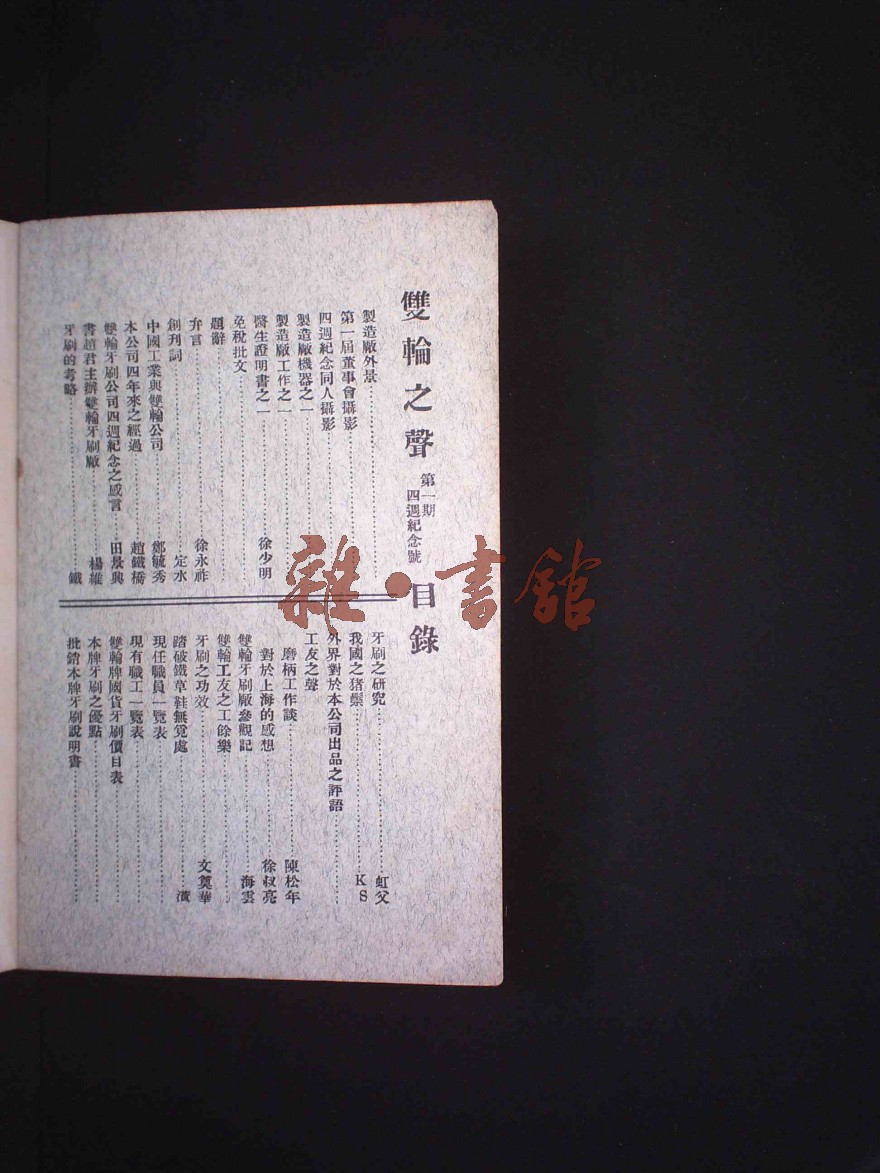 雙輪之聲 第一期 四週紀念號 目錄
製造廠外景
第一屆董事會攝影
四週紀念同人攝影
製造廠機器之一
製造廠工作之一
醫生證明書之一 徐少明
免稅批文
題辭
弁言 徐永祚
創刊詞 定水
中國工業與雙輪公司 鄭毓秀
本公司四年來之經過 趙鐵橋
雙輪牙刷公司四週紀念之感言 田景興
書趙君主辦雙輪牙刷廠 楊維
牙刷的考略 鐵
牙刷之研究 虹父
我國之猪鬃 KS
外界對於本公司出品之評語
工友之聲
磨柄工作談 陳松年
對於上海的感想 徐叔亮
雙輪牙刷廠參觀記 海雲
雙輪工友之工餘樂
牙刷之功效 文奠華
踏破鐵草鞋無覓處
現任職員一覽表
現有職工一覽表
雙輪牌國貨牙刷價目表
本牌牙刷之優點
批銷本牌牙刷說明書
雜·書館